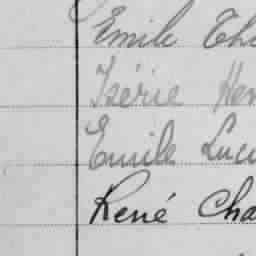 Emile Tho
Isérie Hen
Emile Luci
René Cha